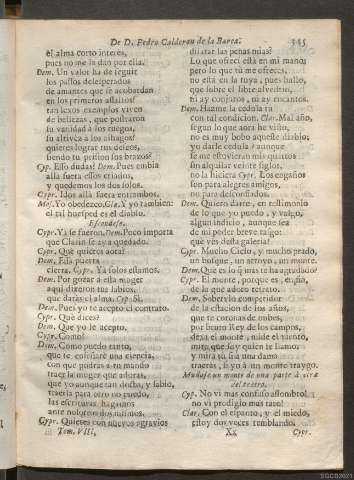 De D. Pedro Calderon de la Barca. 345
el alma corto interes,
pues no me la dàn por ella.
Dem. Un valor ha de seguir
los passos desesperados
de amantes que se acobardan
en los primeros assaltos?
tan lexos exemplos viven
de bellezas, que postraron
su vanidad à los ruegos,
su altivez à los alhagos?
quieres lograr tus deseos,
siendo tu prision sus brazos?
Cyp. Esso dudas? Dem. Pues embia
allà fuera essos criados,
y quedemos los dos solos.
Cypr. Idos allà fuera entrambos.
Mos. Yo obedezco. Cla. Y yo tambien:
el tal huesped es el diablo.
Escondese.
Cypr. Yà se fueron. Dem. Poco importa
que Clarin se aya quedado.
Cypr. Què quieres aora?
Dem. Esta puerta
cierra. Cypr. Ya solos estamos.
Dem. Por gozar à esta muger
aqui dixeron tus labios,
que daràs el alma. Cyp. Sì.
Dem. Pues yo te acepto el contrato.
Cypr. Què dices?
Dem. Que yo le acepto.
Cypr. Como?
Dem. Como puedo tanto,
que te enseñarè una ciencia,
con que podràs à tu mando
traer la muger que adoras,
que yo aunque tan docto, y sabio,
traerla para otro no puedo,
las escrituras hagamos
ante nosotros dos mismos.
Cypr. Quieres con nuevos agravios
Tom. VIII.
dilatar las penas mias?
Lo que ofrecì està en mi mano;
pero lo que tù me ofreces,
no està en la tuya, pues hallo,
que sobre el libre alvedrio,
ni ay conjuros, ni ay encantos.
Dem. Hazme la cedula tù
con tal condicion. Clar. Mal año,
segun lo que aora he visto,
no es muy bobo aqueste diablo;
yo darle cedula? aunque
se me estuvieran mis quartos
sin alquilar veinte siglos,
no la hiciera Cypr. Los engaños
son para alegres amigos,
no para desconfiados.
Dem. Quiero darte, en testimonio
de lo que yo puedo, y valgo,
algun indicio, aunque sea
de mi poder breve rasgo:
què vès desta galeria?
Cypr. Mucho Cielo, y mucho prado,
un bosque, un arroyo, un monte.
Dem. Que es lo q̃ mas te ha agradado?
Cypr. El monte, porque es, en fin,
de la que adoro retrato.
Dem. Sobervio competidor
de la estacion de los años,
que te coronas de nubes,
por bruto Rey de los campos,
dexa el monte, mide el viento,
mira que soy quien te llamo;
y mira tù si à una dama
traeràs, si yo à un monte traygo.
Mudase un monte de una parte à otra
del teatro.
Cyp. No vì mas confuso assombro!
no vì prodigio mas raro!
Clar. Con el espanto, y el miedo,
estoy dos veces temblando.
Xx Cypr.